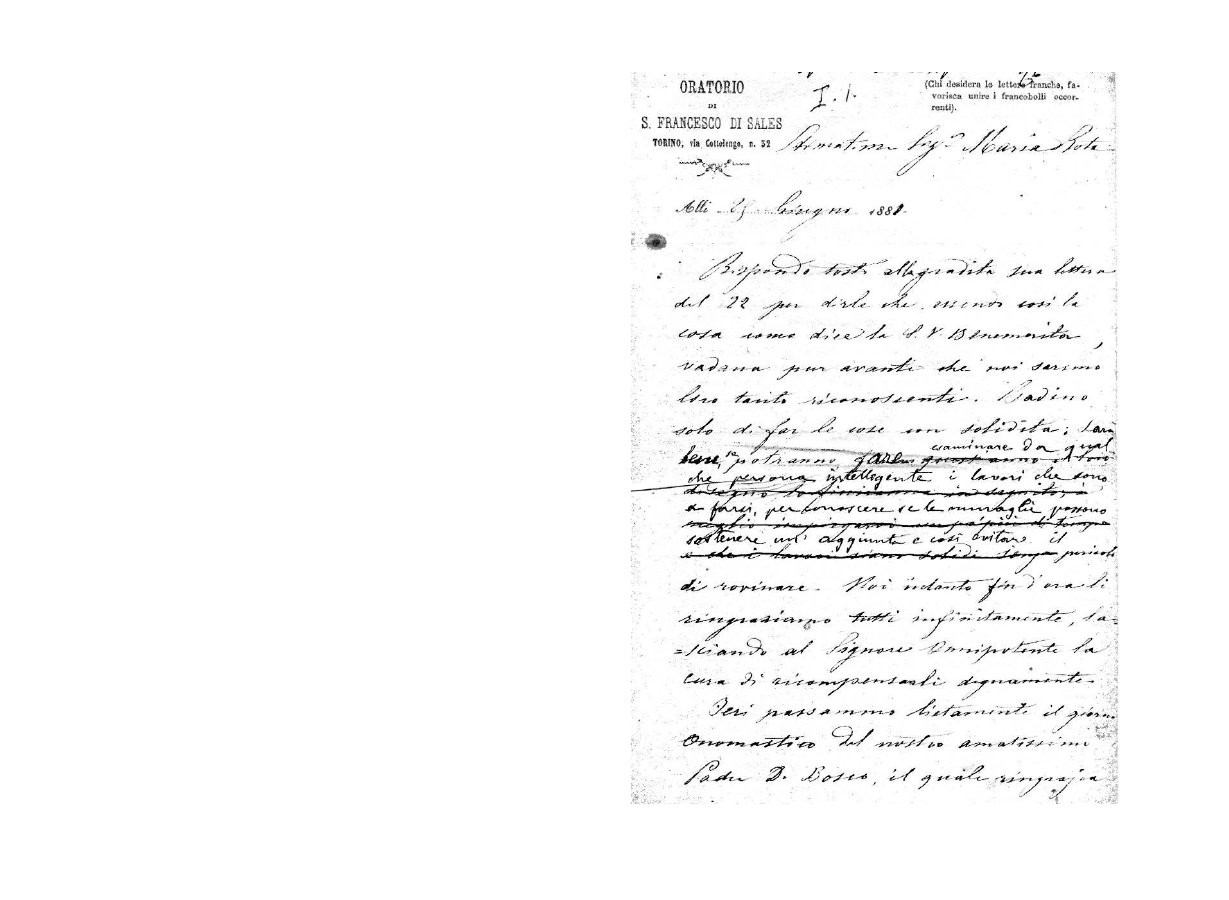 ORATORIO
DI
S. FRANCESCO DI SALES
TORINO, via Cottolengo, n. 32
I. 1.
(Chi desidera le lettere franche, fa-
vorisca unire i francobolli occor-
renti).
Stimatma Sigra Maria Rota
Alli 25 Giugno 1881.
Rispondo tosto alla gradita sua lettera
del 22 per dirle che essendo così la
cosa come dice la S. V. Benemerita,
vadano pur avanti che noi saremo
loro tanto riconoscenti. Badino
solo di far le cose con solidità; sarà
esaminare da qual
bene, se potranno fare quest'anno
che persona intelligente i lavori che sono
a farsi, per conoscere se le muraglie possono
sostenere un' aggiunta e così evitare il
e che i lavori siano solidi senza pericolo
di rovinare. Noi intanto fin d'ora li
ringraziamo tutti infinitamente, la-
=sciando al Signore Onnipotente la
cura di ricompensarli degnamente.
Jeri passammo lietamente il giorno
Onomastico del nostro amatissimo
Padre D. Bosco, il quale ringrazia